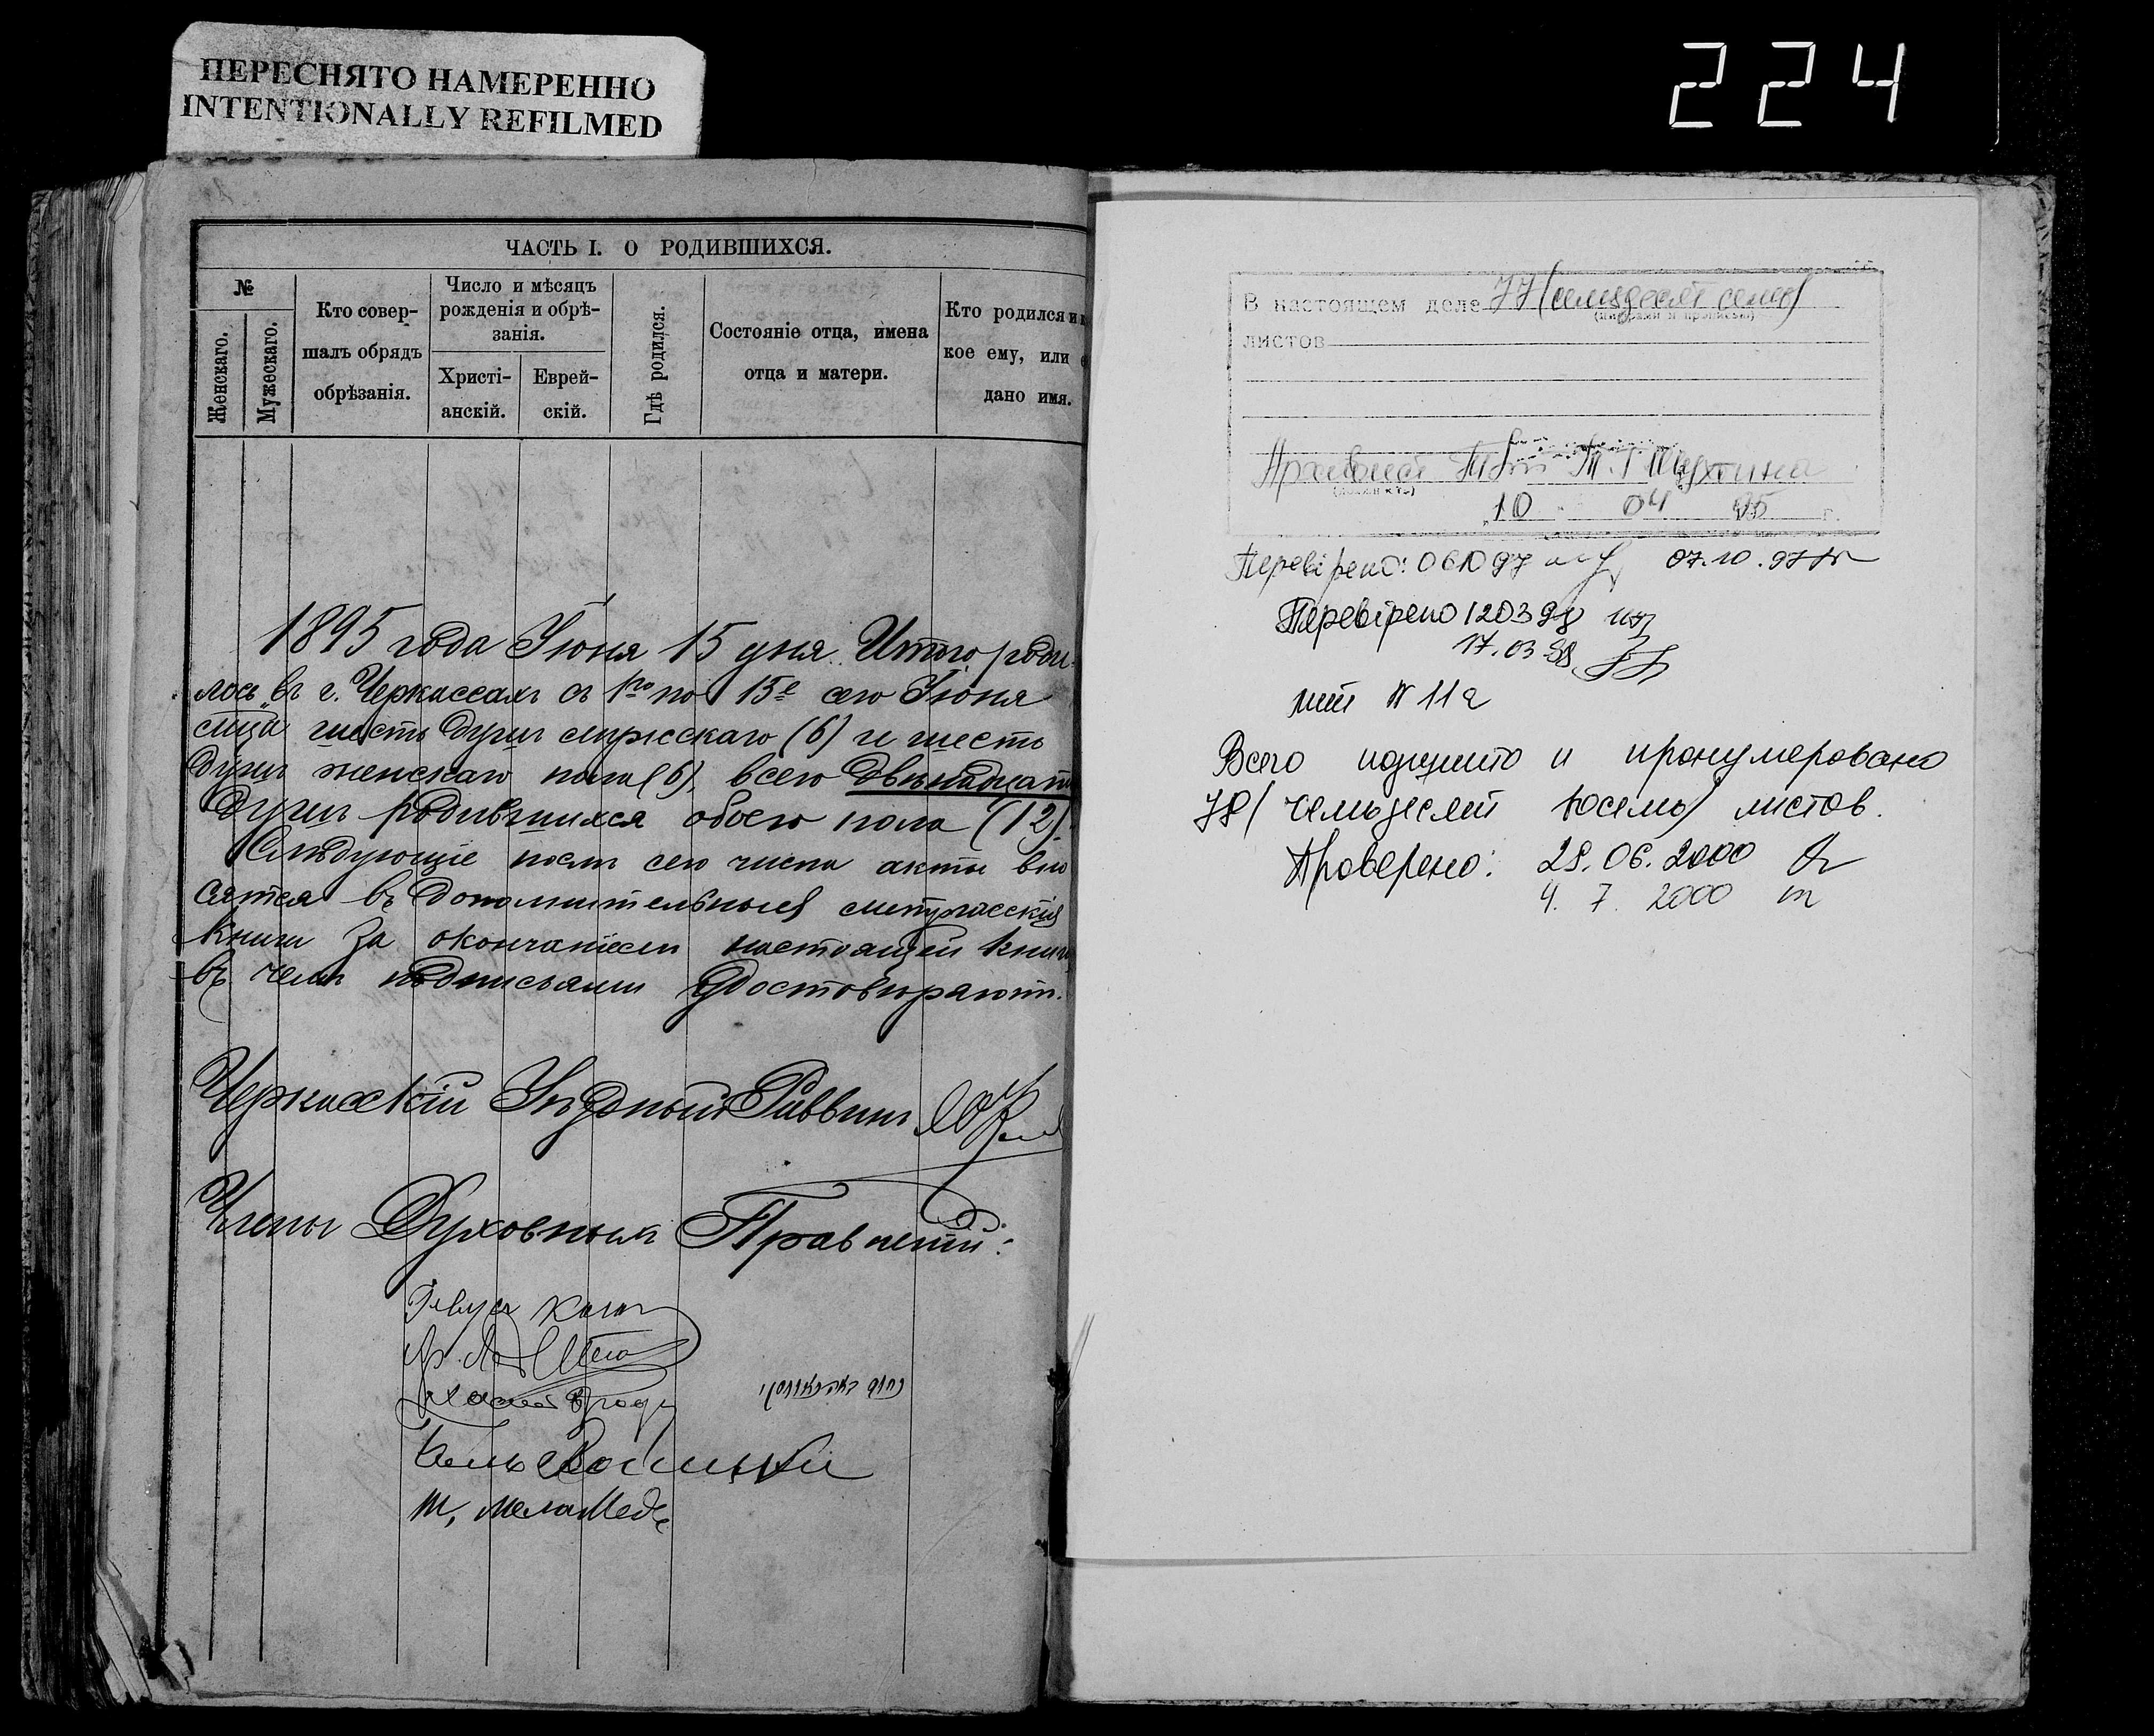 ПЕРЕСНЯТО НАМЕРЕННО
INTENTIONALLY REFILMED
224
ЧАСТЬ I. О РОДИВШИХСЯ.
№
Женскаго.
Мужескаго.
Кто совер-
шалъ обрядъ
обрѣзанія.
Число и мѣсяцъ
рожденія и обрѣ-
занія.
Христі-
анскій.
Еврей-
скій.
Гдѣ родился.
Состояніе отца, имена
отца и матери.
Кто родился и к
кое ему, или е
дано имя.
1895 года Іюня 15 дня. Итого роди
лось въ г. Черкассахъ съ 1го по 15е сего Іюня
мца шесть душъ мужескаго (6) и шесть
душъ женскаго пола (6), всего двѣнадцать
душъ родившихся обоего пола (12).
Слѣдующіе послѣ сего числа акты вно
сятся въ дополнительныя метрическія
книги за окончаніемъ настоящей книги
въ чемъ подписями удостовѣряютъ.
Черкасскій Уѣздный Раввинъ
Члены Духовныхъ Правленій:
Каганъ
М. Меламедъ
В настоящем деле 77 (семьдесят семь)
(цифрами и прописью)
листов
Архивист
10 04 95 г.
Перевірено: 061097 07.10.97
Перевірено 120398
17.03.98
лит № 11а
Всего подшито и пронумеровано
78 (семьдесят восемь) листов.
Проверено: 28.06.2000
4. 7. 2000